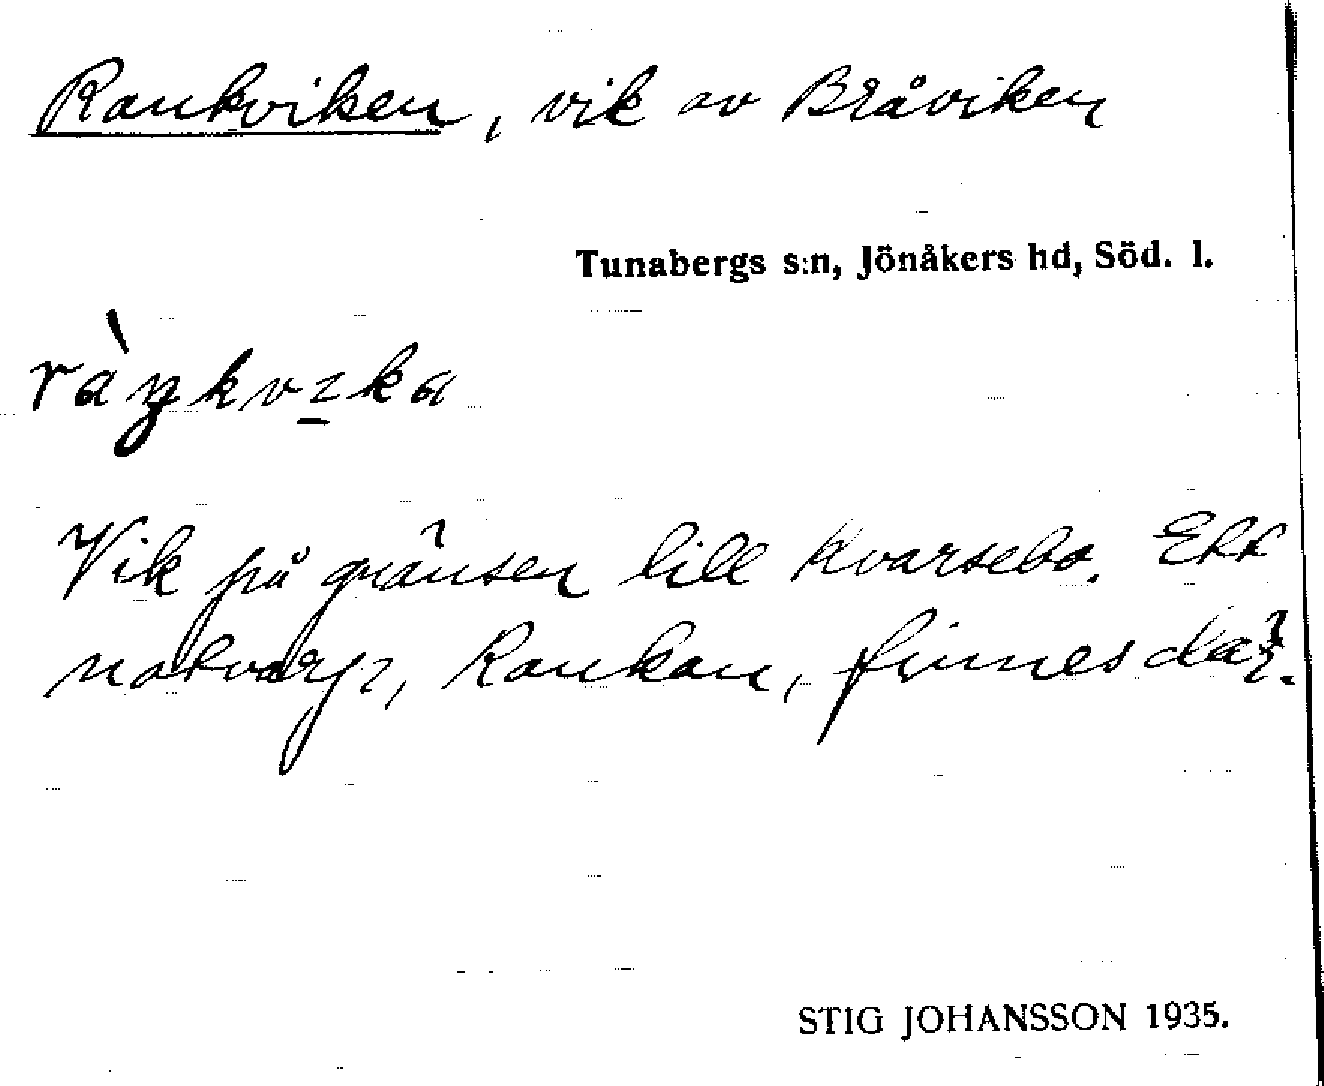 Rankviken, vik av Bråviken
Tunabergs s:n, Jönåkers hd, Söd. l.
ràŋkvɪka
Vik på gränsen till Kvarsebo. Ett
notvarp, Rankan, finnes där.
STIG JOHANSSON 1935.